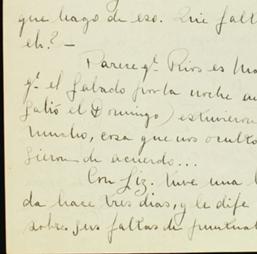 que hago de eso. Qué falt
eh? –
Parece q.
q. el Sabado por la noche au
salió el Domingo) estuvieron
mucho, cosa que nos oculto
sieron de acuerdo...
Con Liz. tuve una l
da hace tres dias, y le dije
sobre sus faltas de puntual